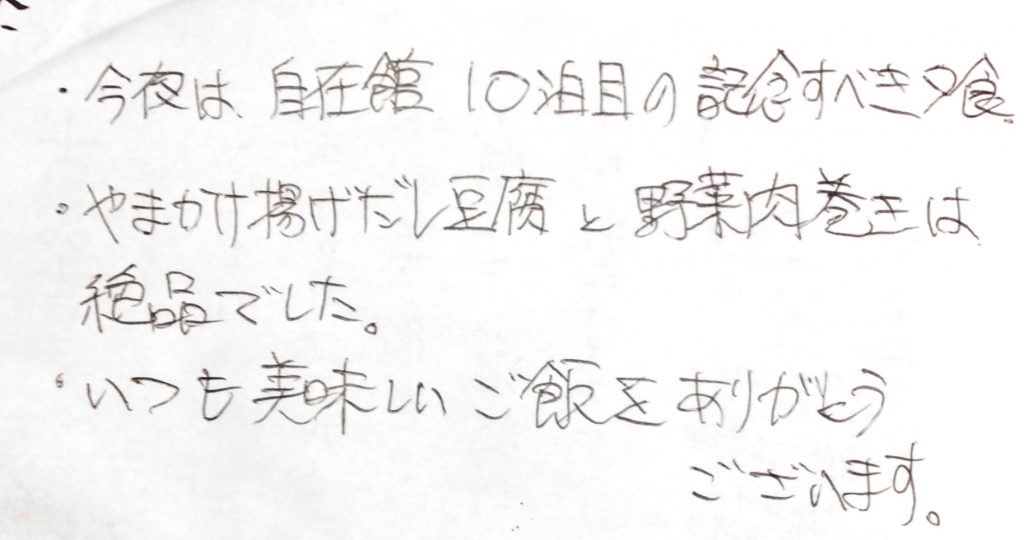 ・今夜は、自在館 10泊目の記念すべき夕食。
・やまかけ揚げだし豆腐と野菜肉巻きは
絶品でした。
・いつも美味しいご飯をありがとう
ございます。